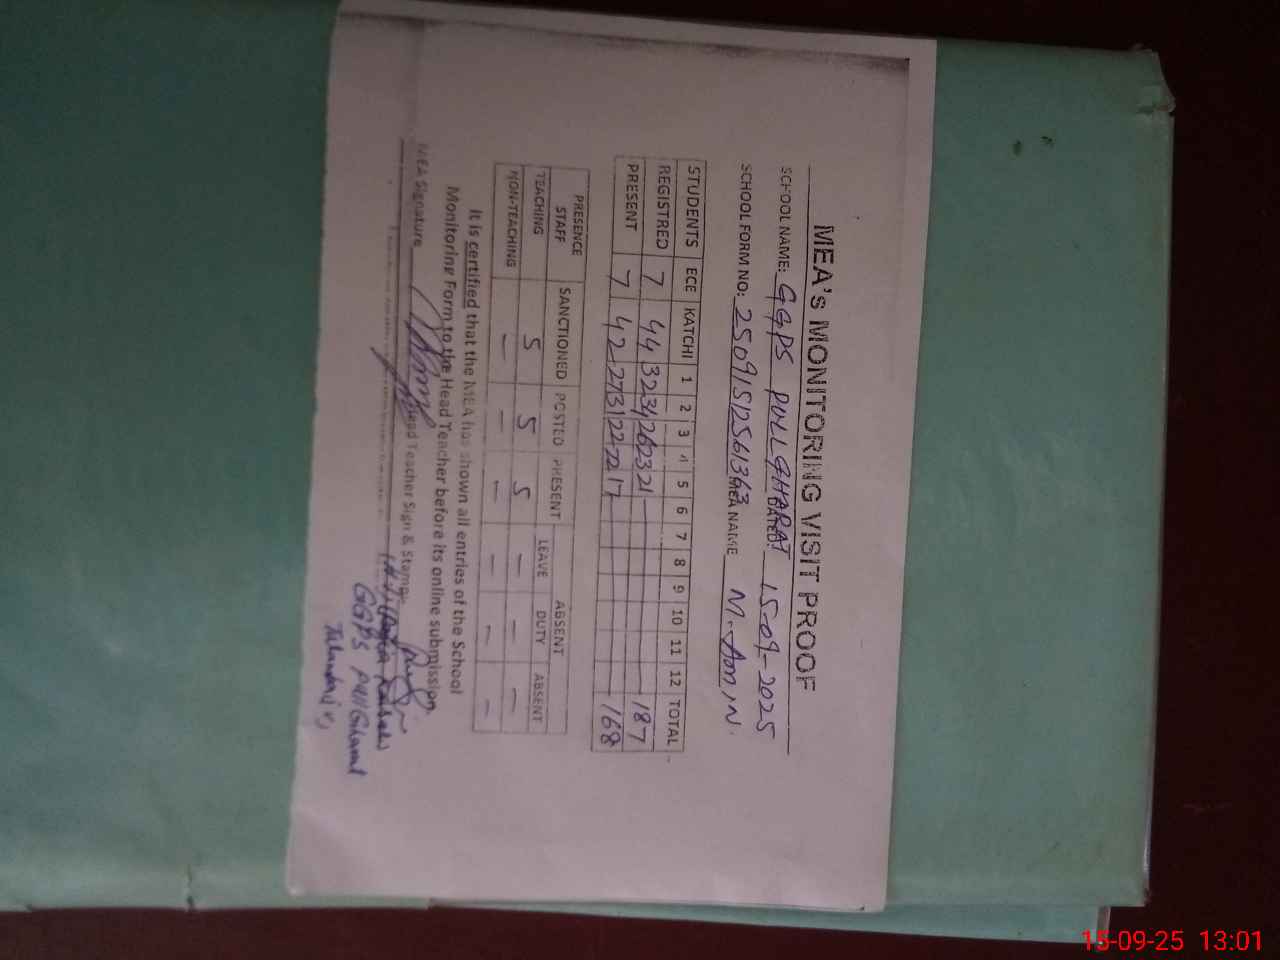 MEA's MONITORING VISIT PROOF
SCHOOL NAME: GGPS PULL GHARAT DATED: 15-09-2025
SCHOOL FORM NO: 25091512561363 MEA NAME M. Amin.
STUDENTS ECE KATCHI 1 2 3 4 5 6 7 8 9 10 11 12 TOTAL
REGISTRED 7 44 32 34 26 23 21 187
PRESENT 7 42 27 31 22 22 17 168
PRESENCE ABSENT
STAFF SANCTIONED POSTED PRESENT LEAVE DUTY ABSENT
TEACHING 5 5 5 – – –
NON-TEACHING – – – – – –
It is certified that the MEA has shown all entries of the School
Monitoring Form to the Head Teacher before its online submission.
MEA Signature Head Teacher Sign & Stamp
GGPS Pull Gharat
15-09-25 13:01